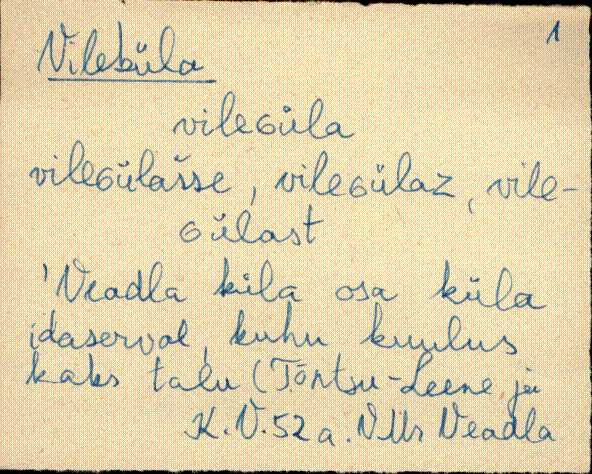 1
Vileküla
vileGüla
vileGülašse, vileGülaz, vile-
Gülast
'Veadla küla osa küla
idaserval, kuhu kuulus
kaks talu (Tõrtsu-Leene ja
K.V. 52 a. VMr Veadla